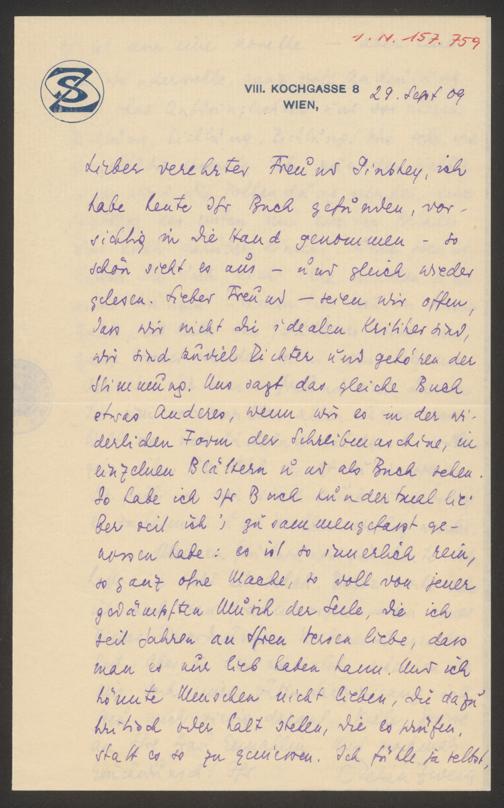 1. N. 157.759
SZ
VIII. KOCHGASSE 8
WIEN, 29. Sept 09
Lieber verehrter Freund Ginzkey, ich
habe heute Ihr Buch gefunden, vor-
sichtig in die Hand genommen – so
schön sieht es aus – und gleich wieder
gelesen. Lieber Freund – seien wir offen,
dass wir nicht die idealen Kritiker sind,
wir sind zuviel Dichter und gehören der
Stimmung. Uns sagt das gleiche Buch
etwas Anderes, wenn wir es in der wi-
derlichen Form der Schreibmaschine, in
einzelnen Blättern und als Buch sehen.
So habe ich Ihr Buch hundertmal lie-
ber seit ich's zusammengefasst ge-
nossen habe: es ist so innerlich rein,
so ganz ohne Mache, so voll von jener
gedämpften Musik der Seele, die ich
seit Jahren an Ihren Versen liebe, dass
man es nur lieb haben kann. Und ich
könnte Menschen nicht lieben, die dazu
kritisch oder kalt stehen, die es prüfen,
statt es so zu geniessen. Ich fühle ja selbst,